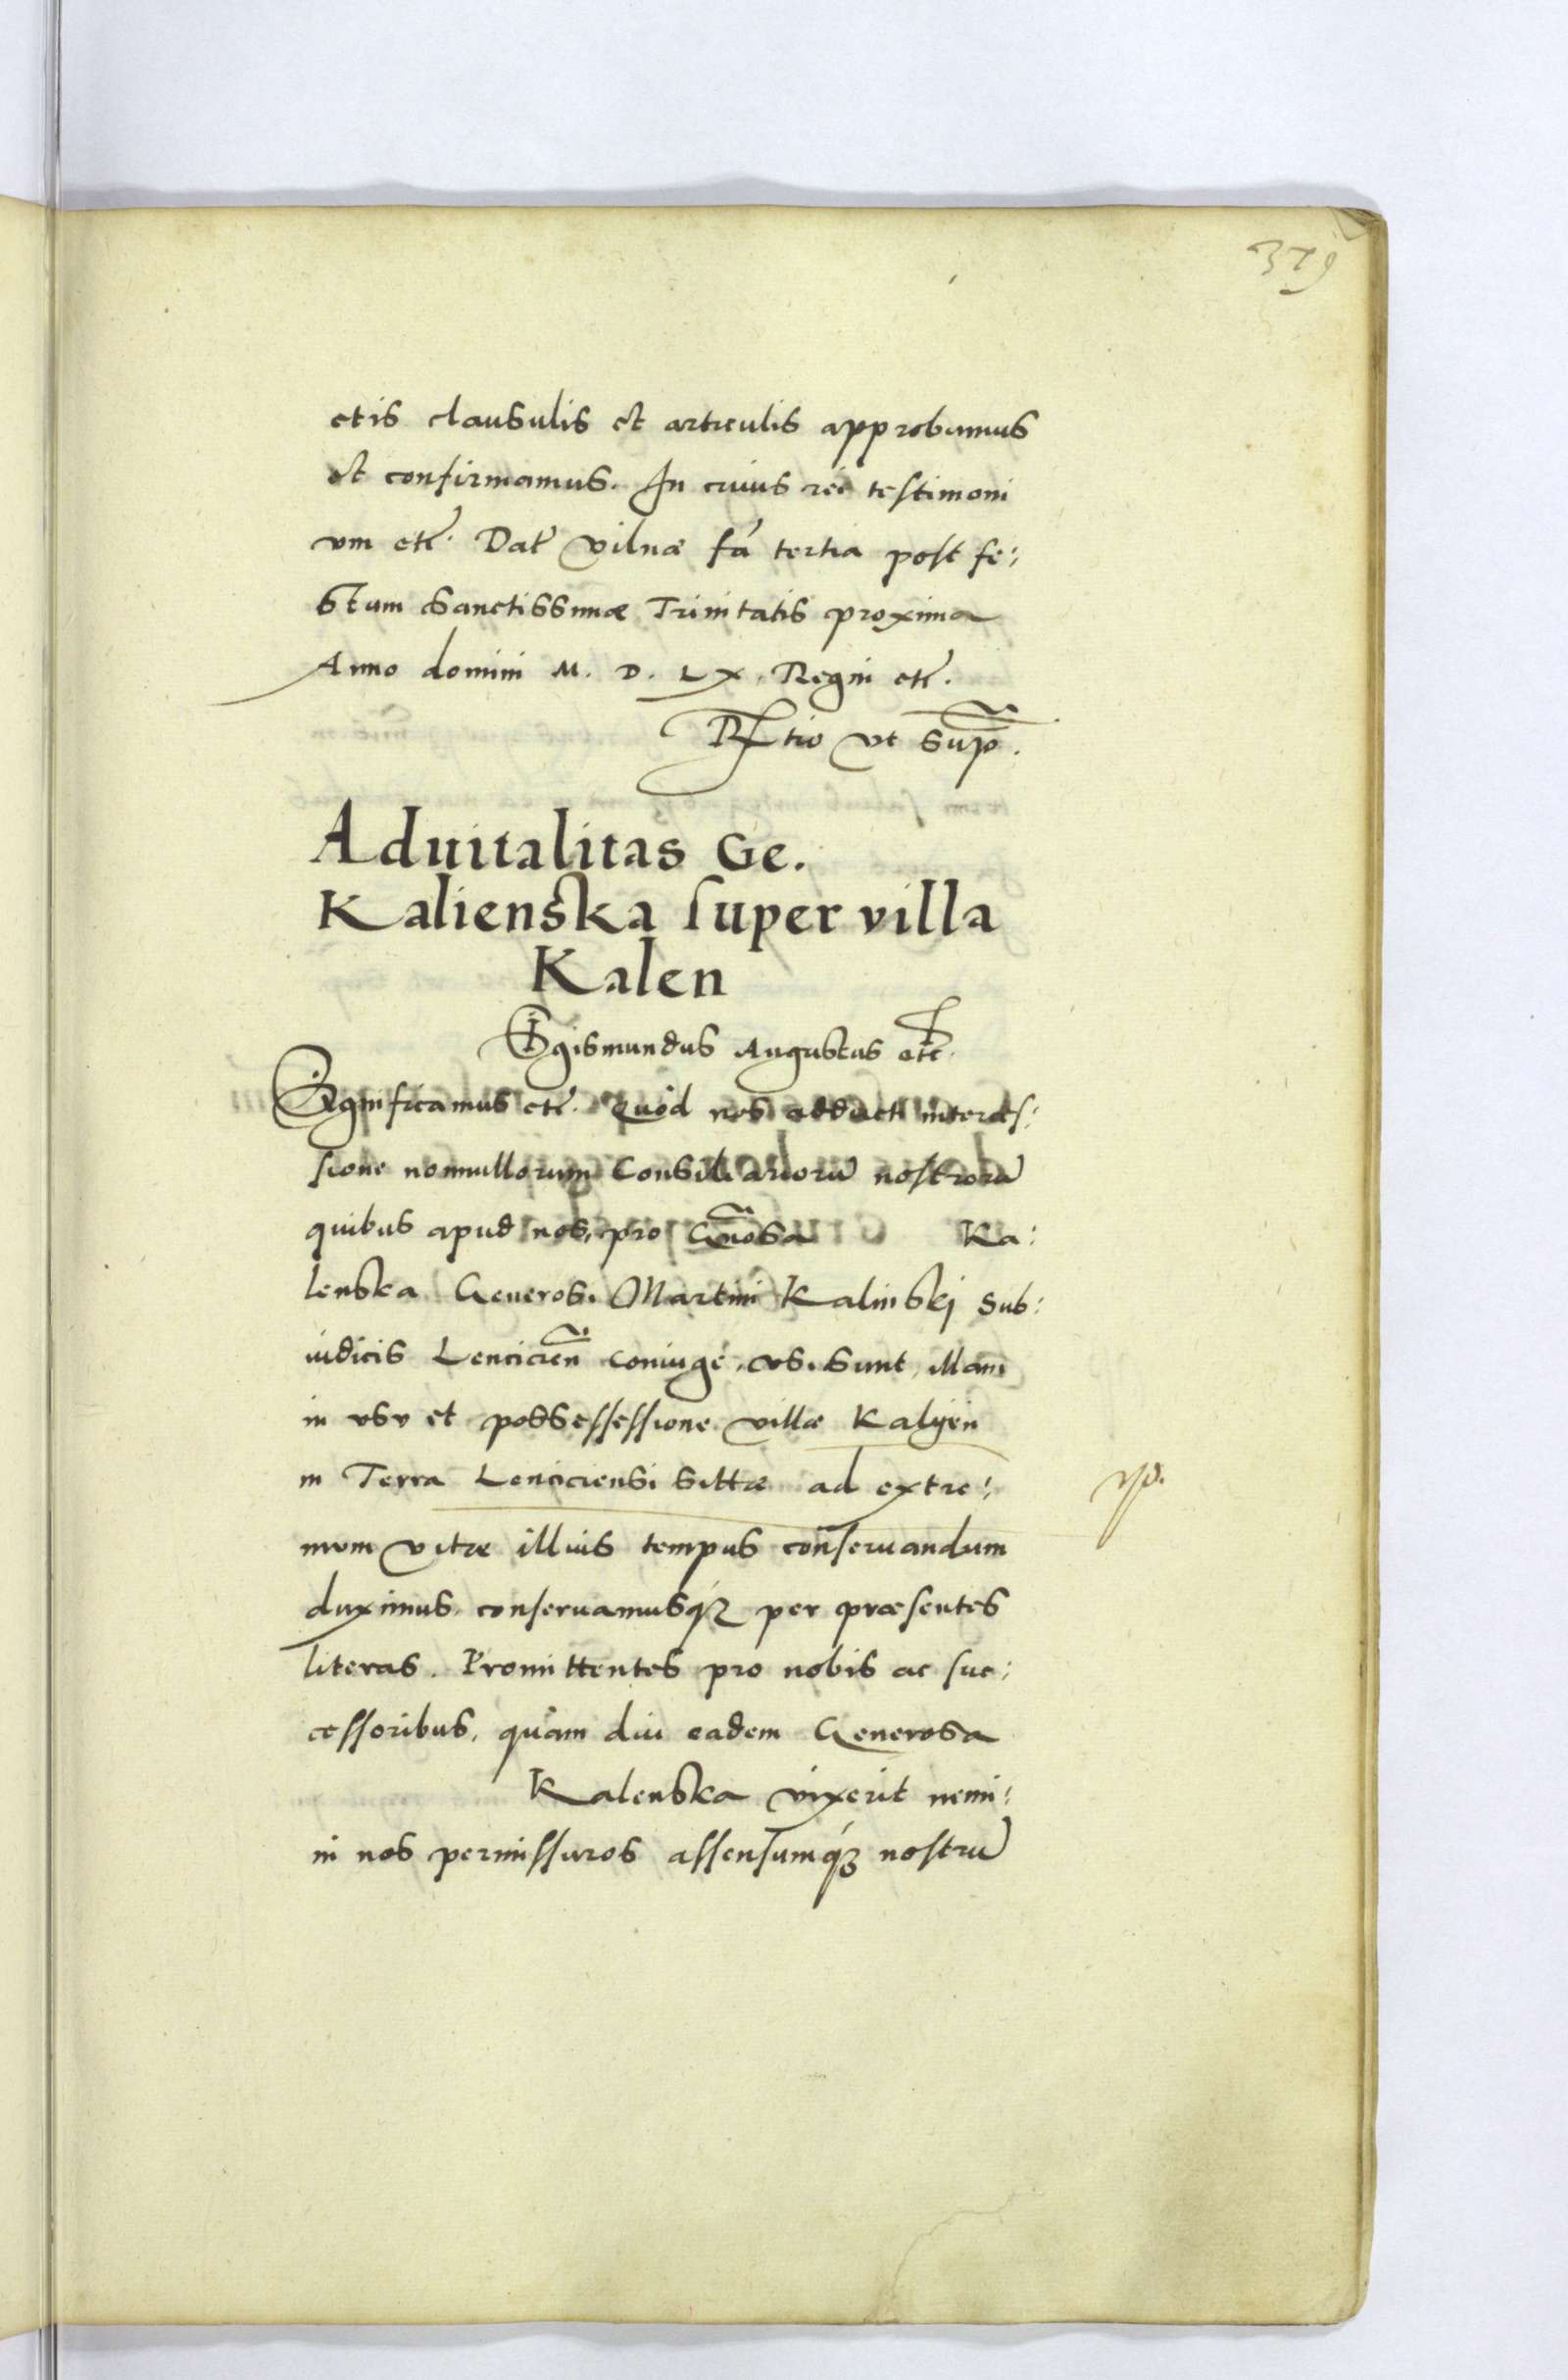 379
ctis clausulis et articulis approbamus
et confirmamus. In cuius rei testimoni
um etc̃. Dat̃ Vilnæ fã tertia post fe:
stum Sanctissimæ Trinitatis proxima
Anno domini M. D. LX. Regni etc̃.
Rtio vt sup̃.
Aduitalitas Ge.
Kalienska super villa
Kalen
Sigismundus Augustus etc̃.
Significamus etc̃. Quod nos adducti interces:
sione nonnullorum Consiliariorũ nostrorũ
quibus apud nos, pro Gñosa Ka:
lenska Generosi Martini Kalinskj Sub:
iudicis Lencicien̄ coniuge, vsi sunt, illam
in vsv et possessessione villæ Kalyen
in Terra Lenciciensi sittæ ad extre:
mvm vitæ illius tempus conseruandum
duximus, conseruamusq́ꝫ per præsentes
literas. Promittentes pro nobis ac suc:
cessoribus, quam diu eadem Generosa
Kalenska vixerit nemi:
ni nos permissuros assensumq́ꝫ nostrũ